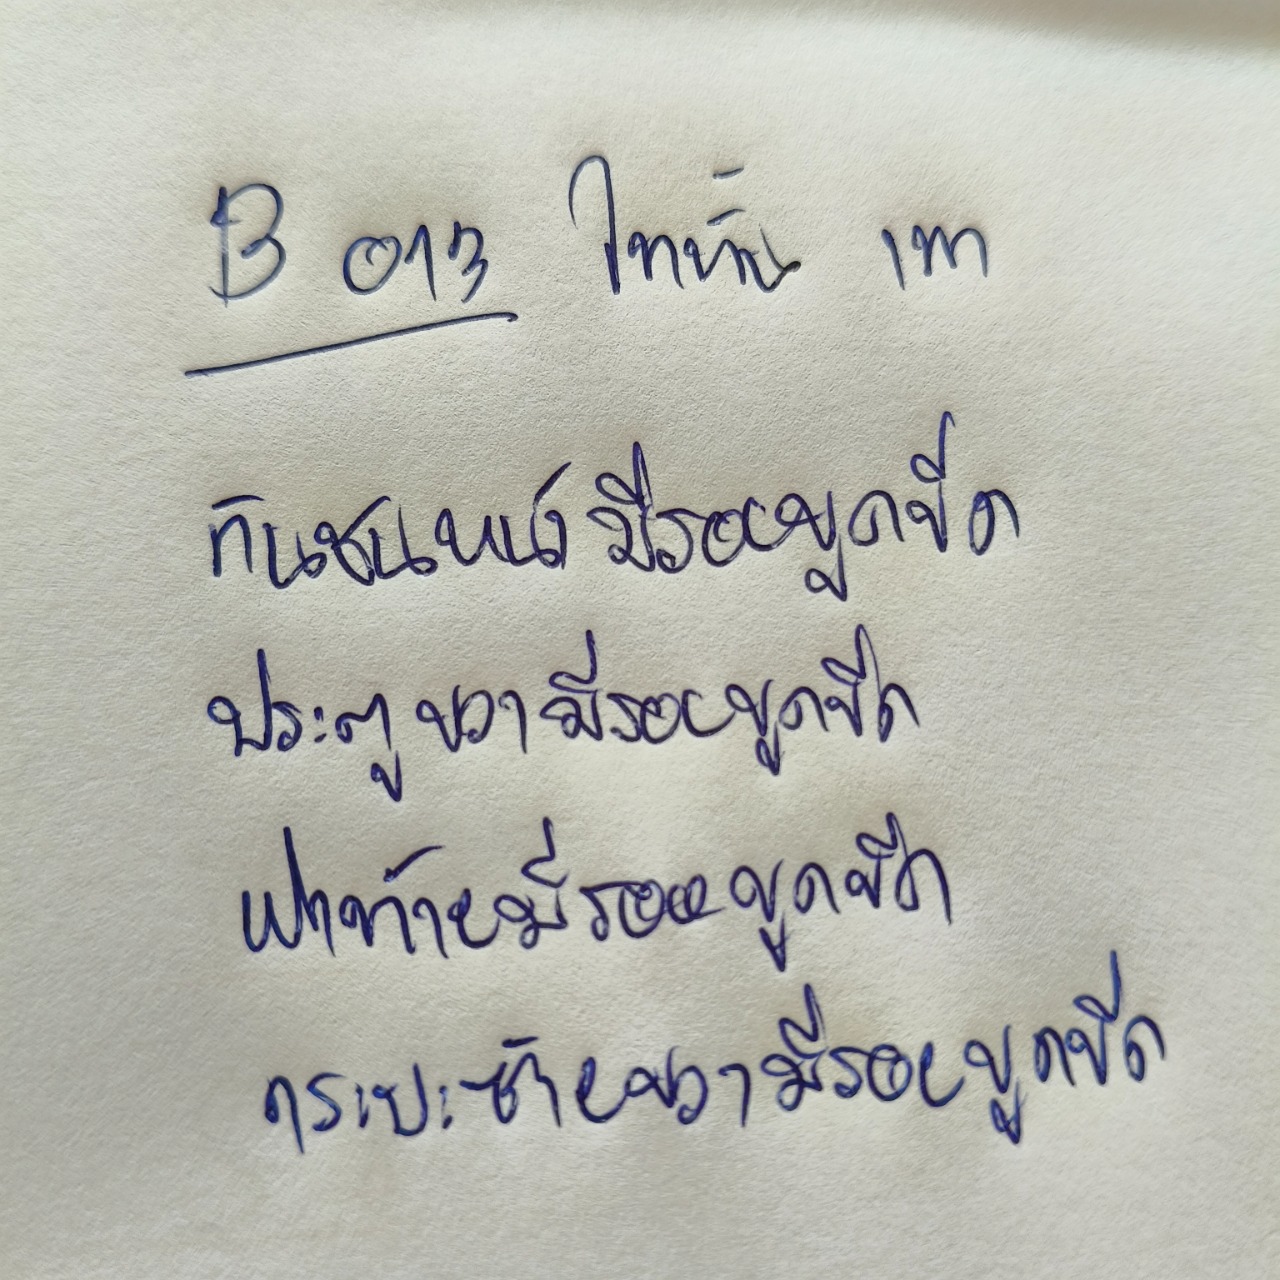 B 013 ไททัน เทา
กันชนหน้า มีรอยขูดขีด
ประตู ขวา มีรอยขูดขีด
ฝาท้ายมีรอยขูดขีด
กระบะซ้ายขวามีรอยขูดขีด